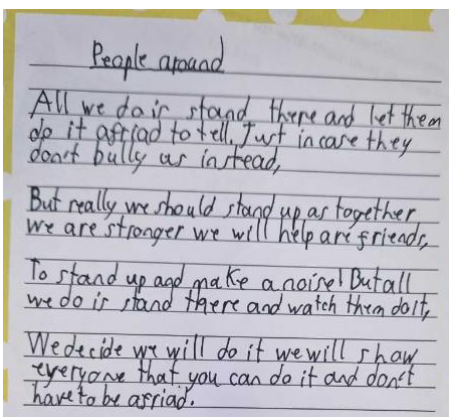 People around
All we do is stand there and let them
do it afriad to tell. Just in case they
don't bully us instead,
But really we should stand up as together
we are stronger we will help are friends,
To stand up and make a noise! But all
we do is stand there and watch them do it,
We decide we will do it we will show
everyone that you can do it and don't
have to be afriad.